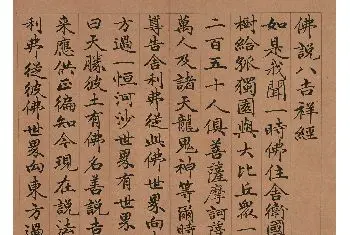 佛說八吉祥經
如是我聞一時佛住舍衛國
樹給孤獨園與大比丘衆一
二百五十人俱菩薩摩訶薩
萬人及諸天龍鬼神等爾時
尊告舍利弗從此佛世界向
方過一恒河沙世界有世界
曰天勝彼土有佛名善說吉
來應供正徧知今現在說法
利弗從彼佛世界向東方過